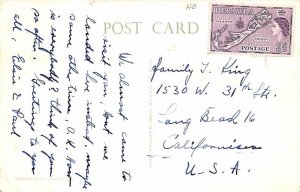 POST CARD
BERMUDA
POSTAGE
3d
We almost came to
visit you, but we
landed too instead, maybe
some other time. O.K. How
is everybody? I think of you
so often. Greetings to you
all, Elsie & Paul
Family T. King
1530 W. 31 th Str.
Long Beach 16
California
U.S.A.